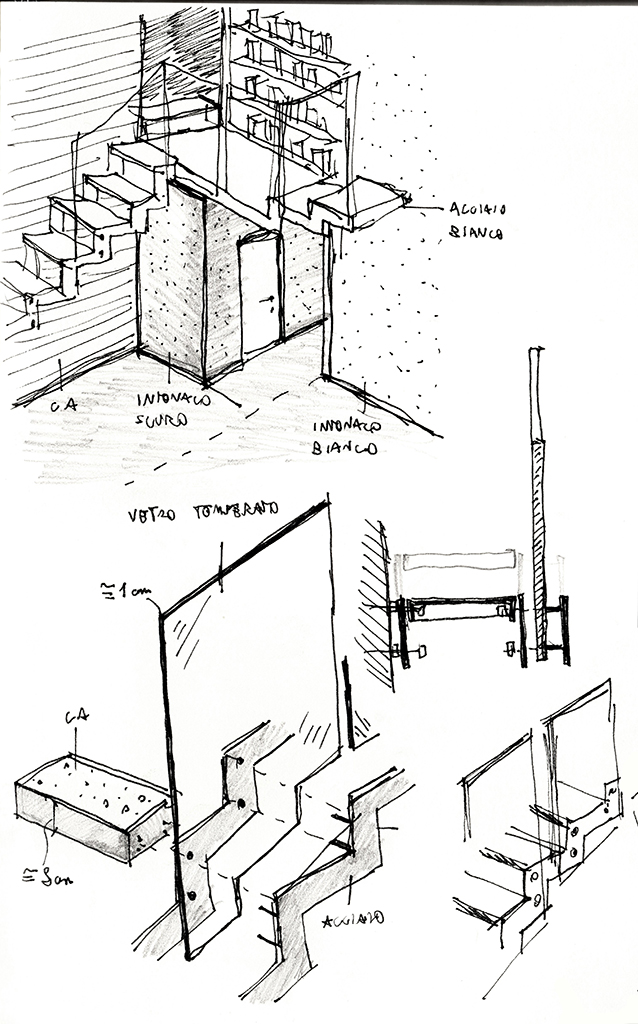 ACCIAIO
BIANCO
CA
INTONACO
SCURO
INTONACO
BIANCO
VETRO TEMPERATO
≅1cm
CA
ACCIAIO